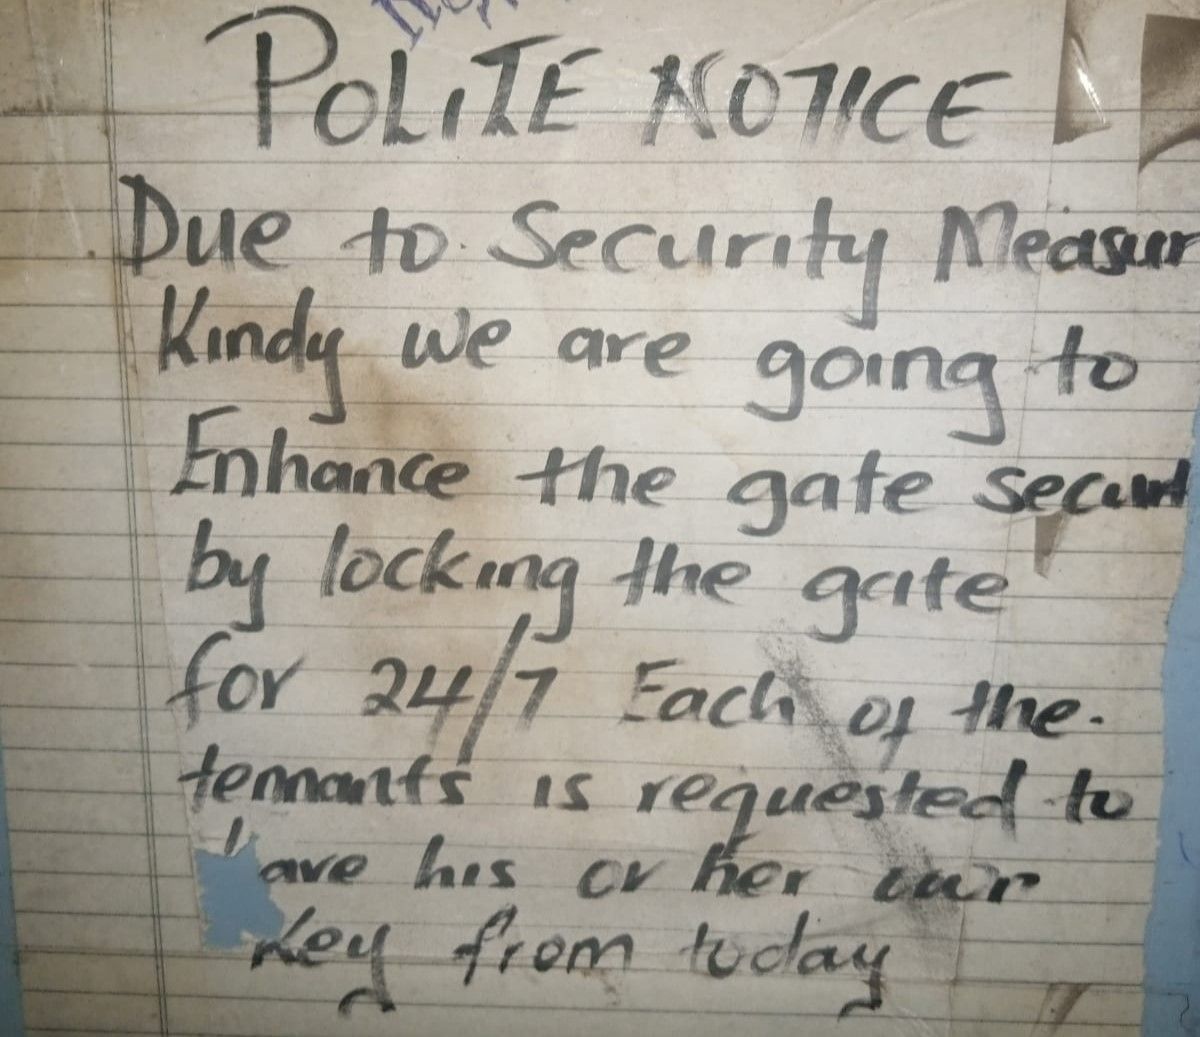 POLITE NOTICE
Due to Security Measur
Kindy we are going to
Enhance the gate securit
by locking the gate
for 24/7 Each of the.
tennants is requested to
have his or her own
Key from today